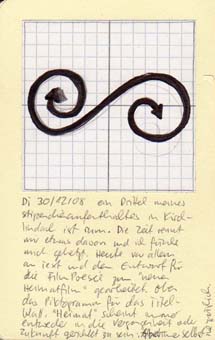 Di 30/12/08 ein Drittel meines
Stipendienaufenthaltes in Kirch-
lindach ist rum. Die Zeit rennt
mir etwas davon und ich fühle
mich gehetzt. Heute vor allem
an Text und dem Entwurf für
die Filmpoesie zum "neuen
Heimatfilm" gearbeitet. Oder
das Piktogramm für das Titel-
blatt. "Heimat" scheint immer
entweder in die Vergangenheit oder
Zukunft gerichtet zu sein. selbst